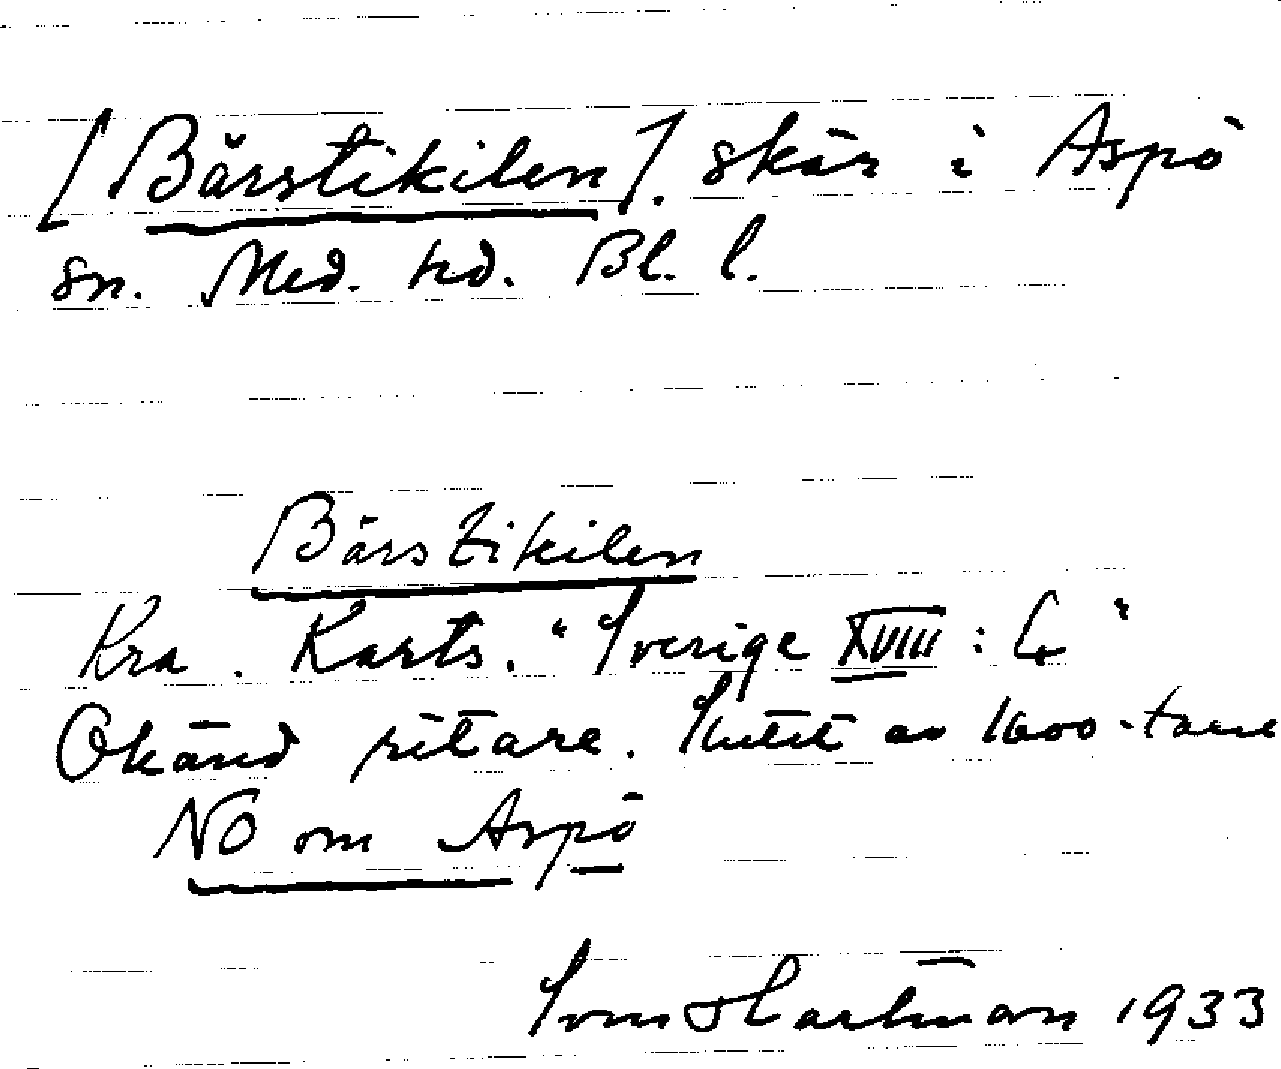 [Bärstikilen]. skär i Aspö
sn. Med. hd. Bl. l.
Bärstikilen
Kra. Karts. "Sverige XVIII : 4"
Okänd ritare. Slutet av 1600-talet
NO om Aspö
Sven Hartman 1933